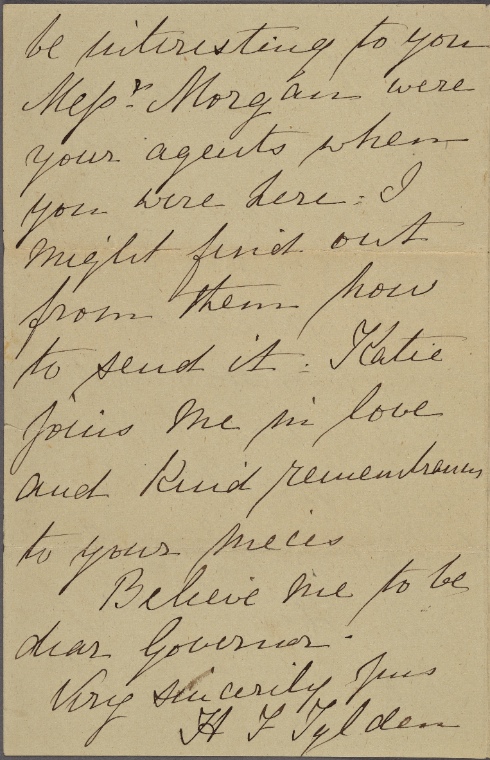 be interesting to you
Messrs. Morgan were
your agents when
you were here. I
might find out
from them how
to send it. Katie
joins me in love
and kind remembrances
to your nieces
Believe me to be
dear Governor.
Very sincerely yrs
H F Tylden